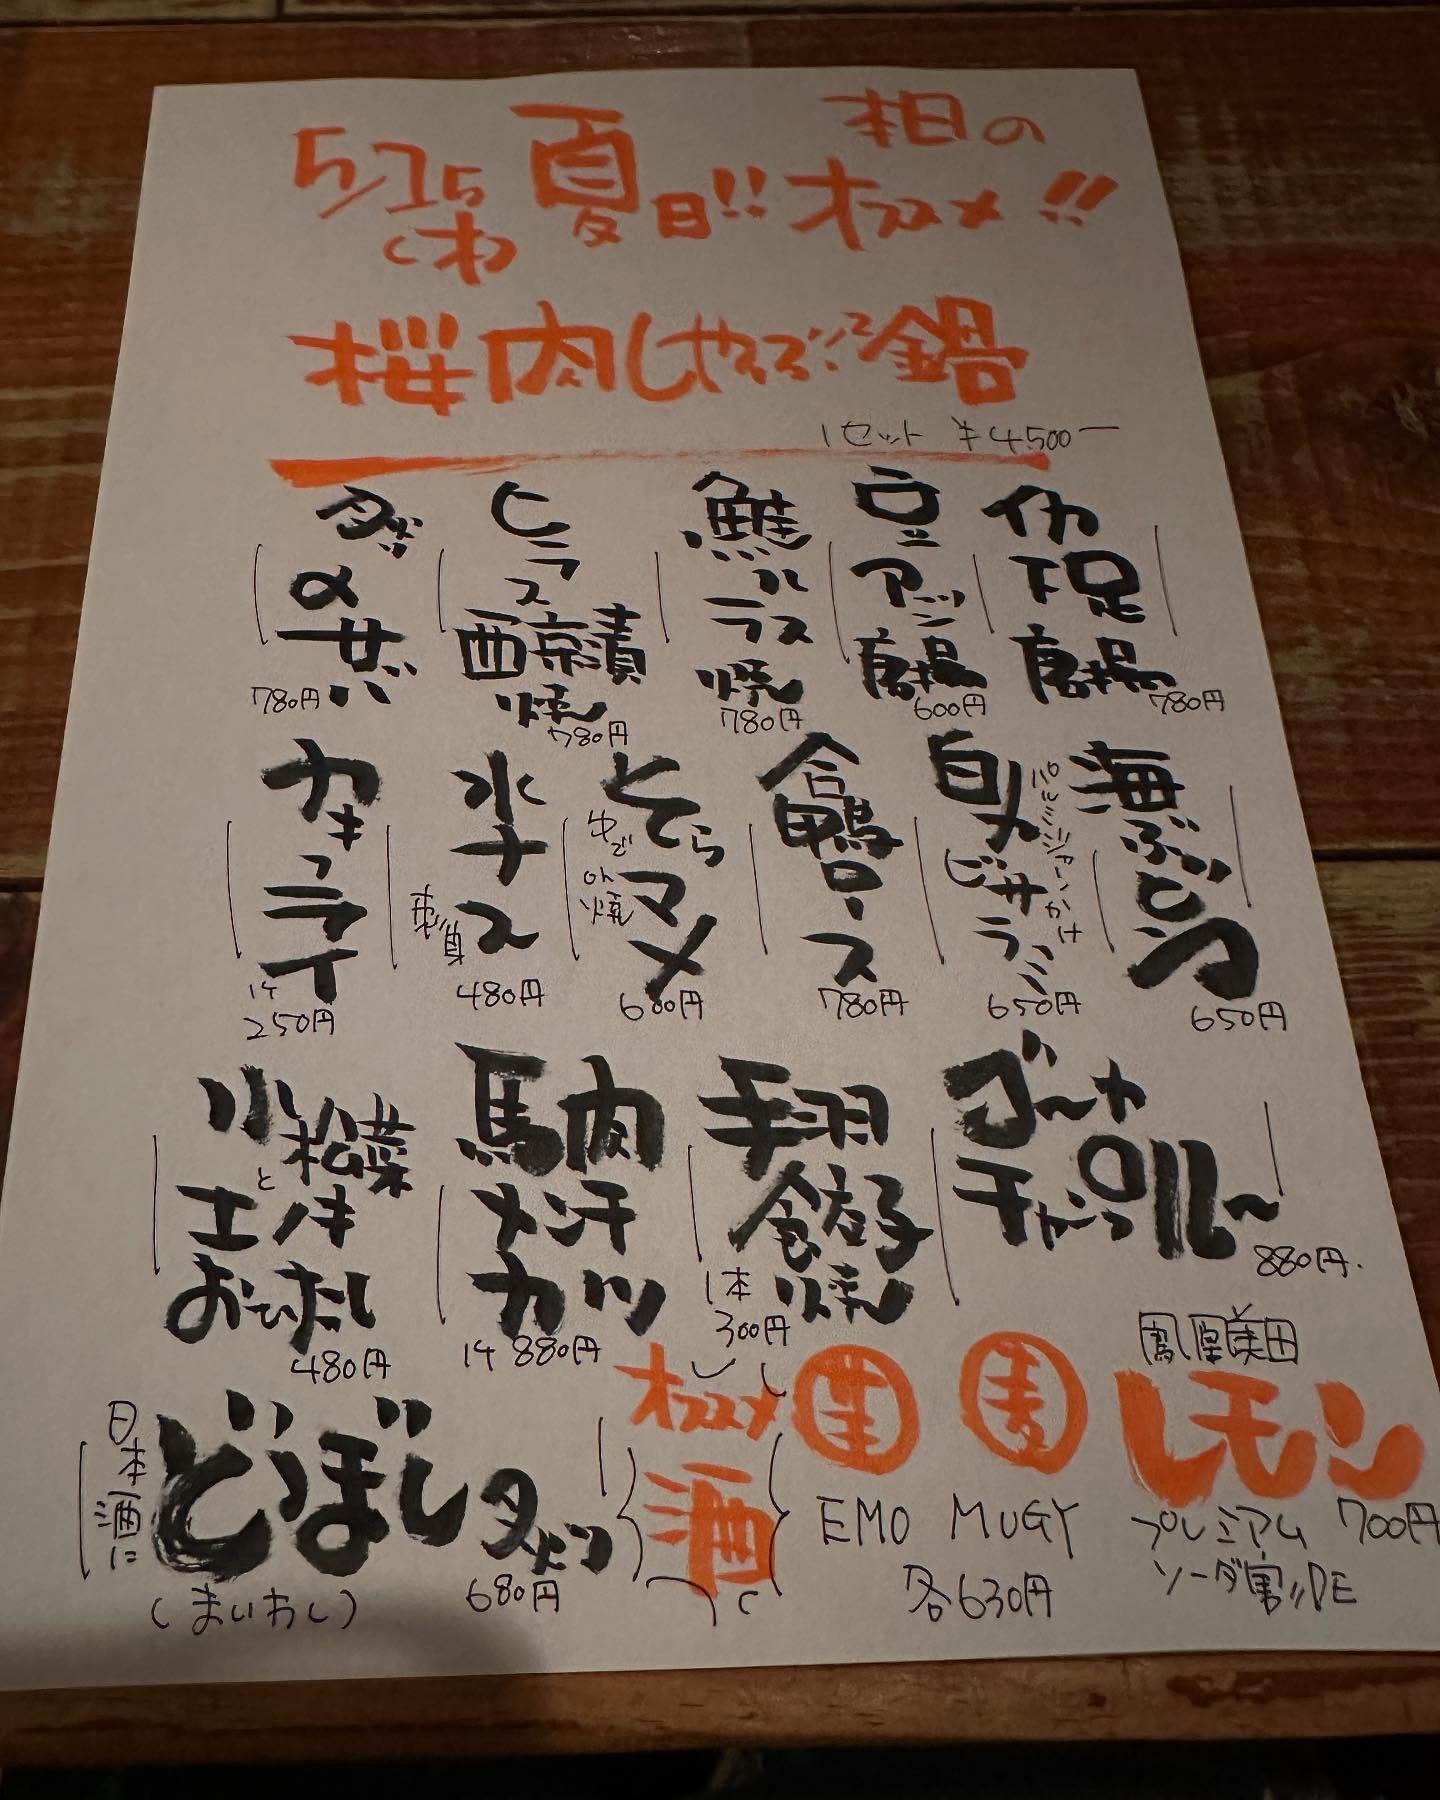 本日の
5/15 夏日!! オススメ!!
桜肉しゃぶしゃぶ鍋
1セット ¥4,500ー
イカ下足唐揚 780円
豆アジ唐揚 600円
鮭ハラス焼 780円
ヒラス西京漬焼 780円
780円
海ぶどう 650円
白〆ジサラミ パルミジャーノかけ 650円
合鴨ロース 780円
そらマメ ゆで or 焼 600円
水ナス 刺身 480円
カキフライ 1ケ 250円
ゴーヤチャンプルー 880円
手羽餃子焼 1本 300円
馬肉メンチカツ 1ケ 880円
小松菜とエノキおひたし 480円
日本酒に どぼし タリン
(まいわし) 680円
オススメ 酒
EMO MUGY
各630円
麦
鳳凰美田
レモン
プレミアム 700円
ソーダ割りDE